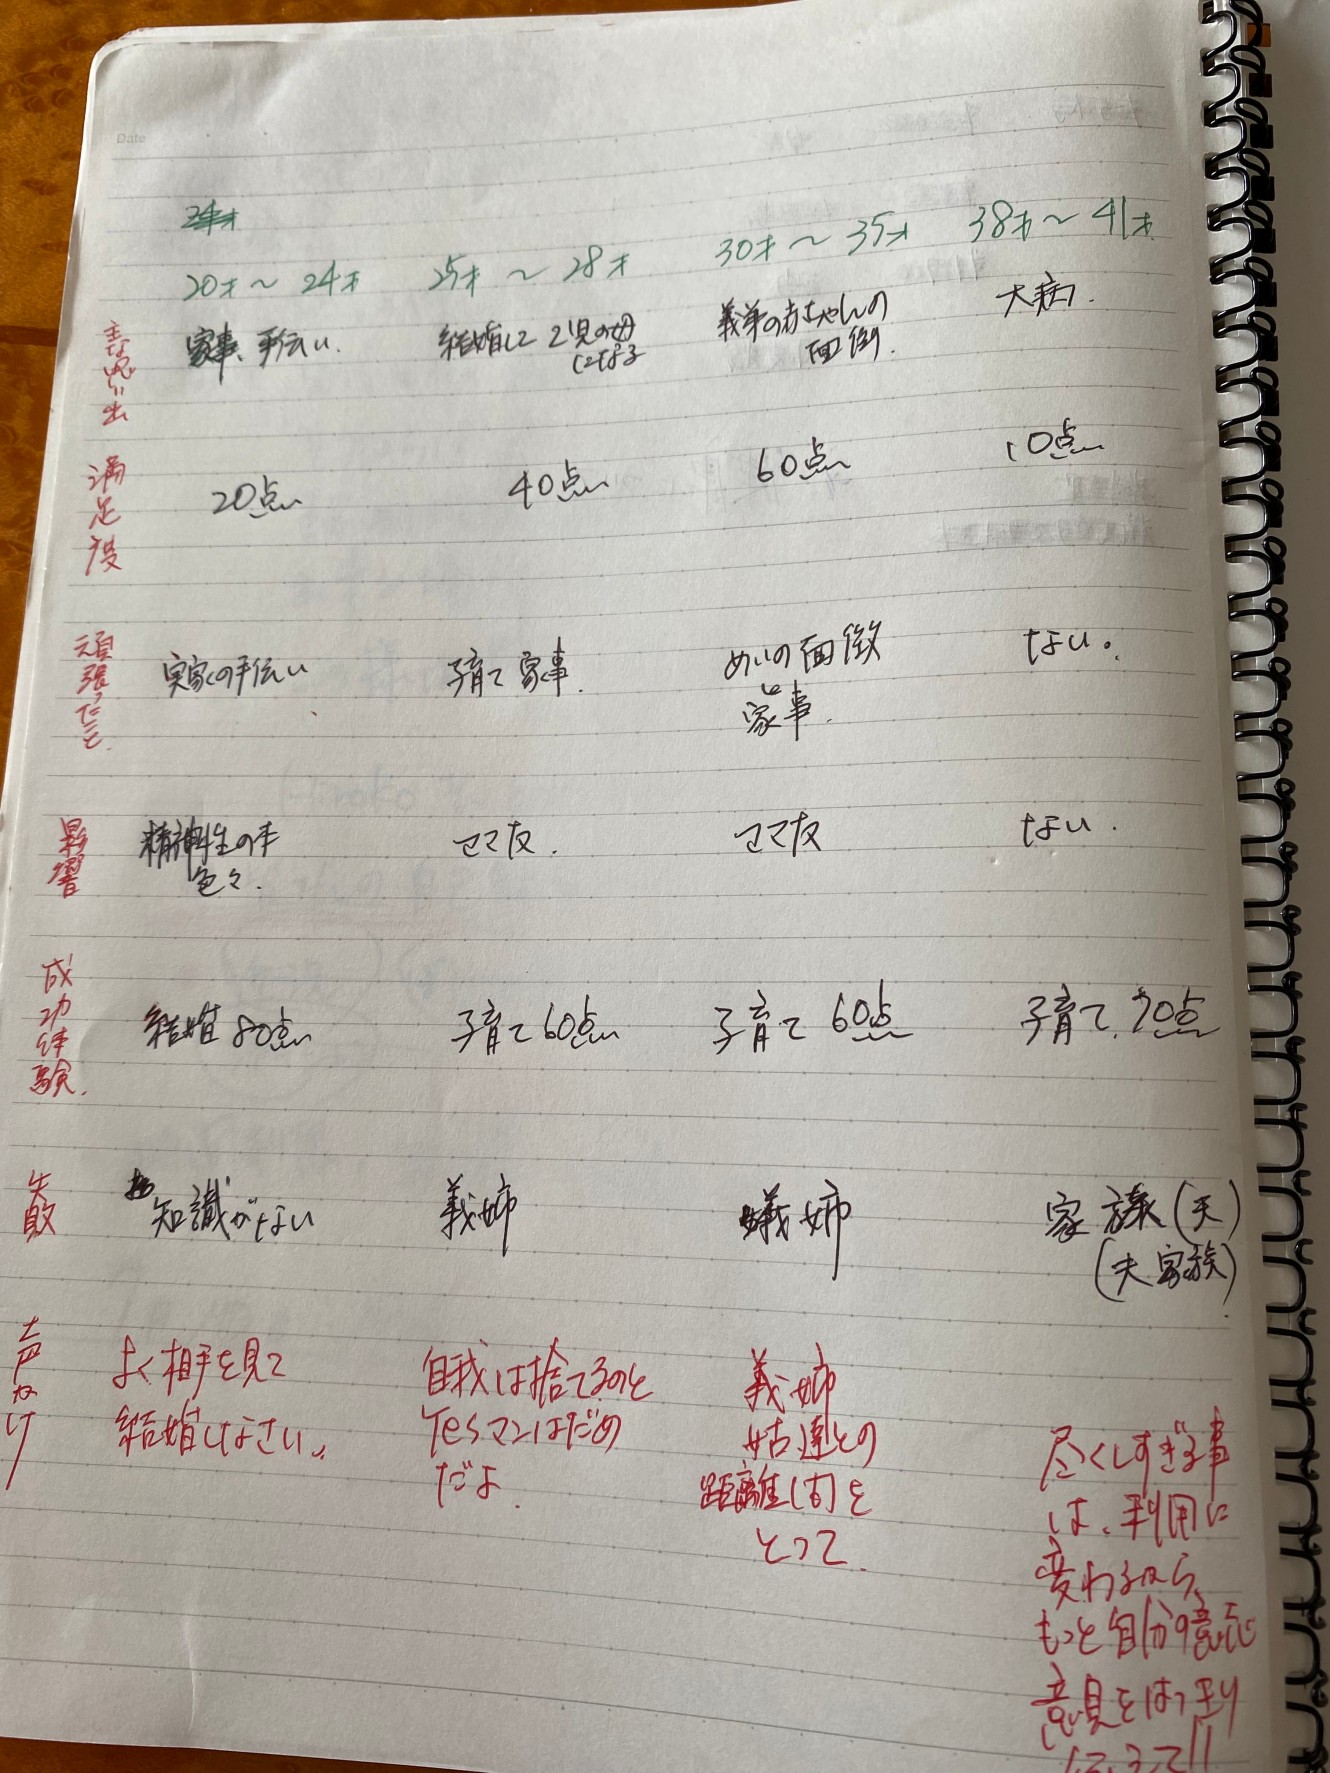 Date
20才～24才 25才～28才 30才～35才 38才～41才
主な思い出 家事、手伝い. 結婚して2児の母 義弟の赤ちゃんの 大病.
になる 面倒.
満足度 20点 40点 60点 10点
頑張ったこと. 実家の手伝い 子育て家事. めいの面倒 ない。
と
家事.
影響 精神性の本 ママ友. ママ友 ない.
色々.
成功体験. 結婚80点 子育て60点 子育て60点 子育て.70点
失敗 知識がない 義姉 義姉 家族(夫)
(夫家族)
声かけ よく相手を見て 自我は捨てるのと 義姉
結婚しなさい。 Yesマンはだめ 姑達との 尽くしすぎる事
だよ. 距離 を は、利用に
とって. 変わるから、
もっと自分の意志
意見をはっきり
言って!!